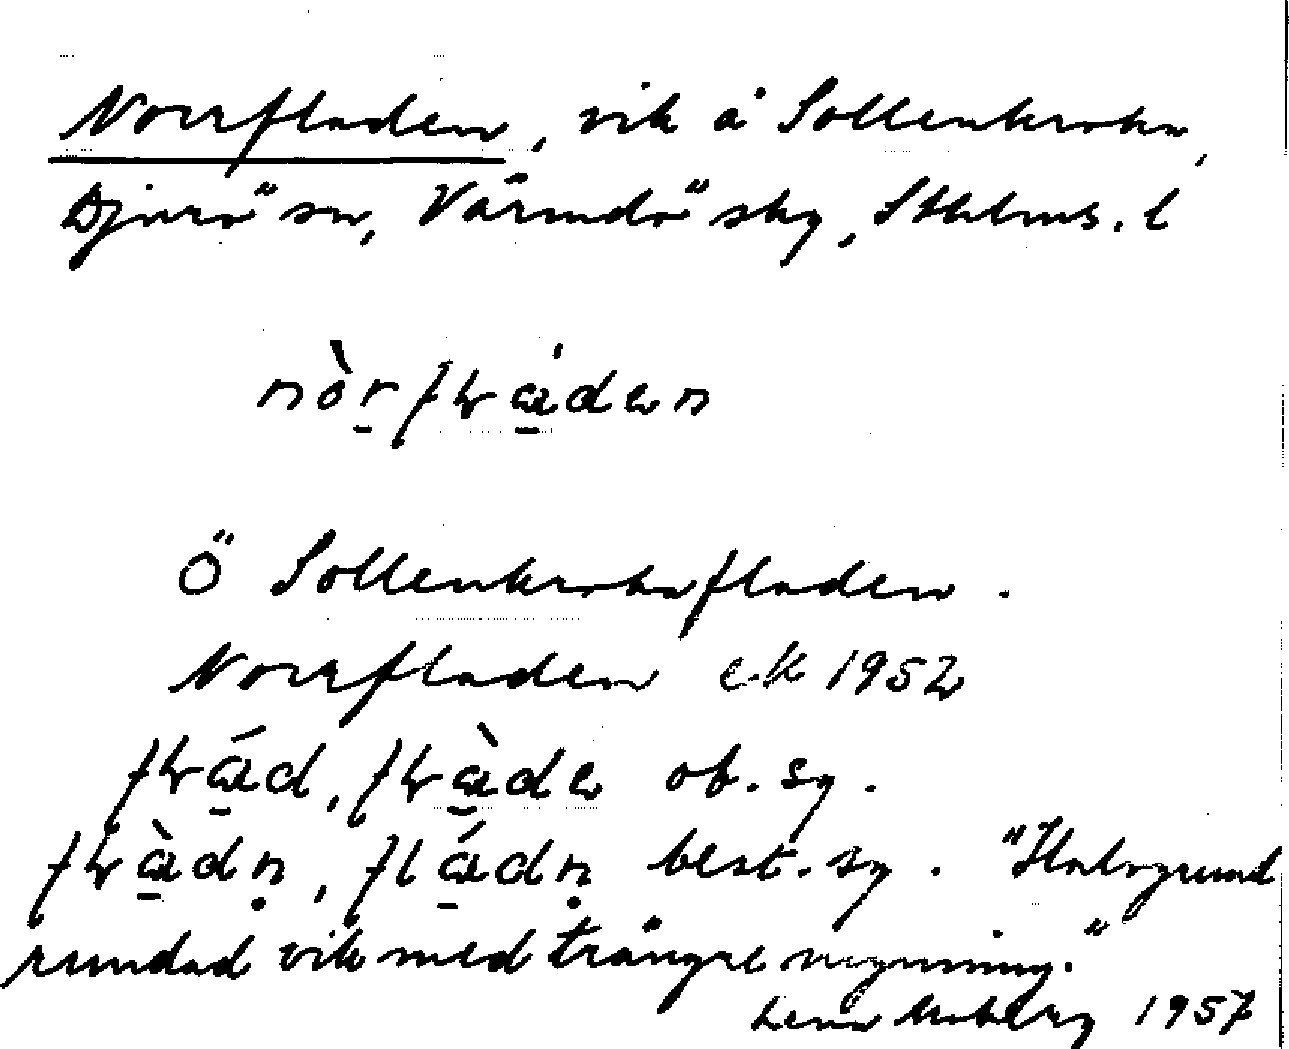 Norrfladen, vik å Sollenkroka,
Djurö sn, Värmdö sky, Sthlms. l
nòrfɫáden
Ö Sollenkrokafladen.
Norrfladen ek 1952
fɫád, fɫàde ob. sg.
fɫàdṇ, fládṇ best. sg. "Halvgrund
rundad vik med trängre mynning."
Lena Moberg 1957